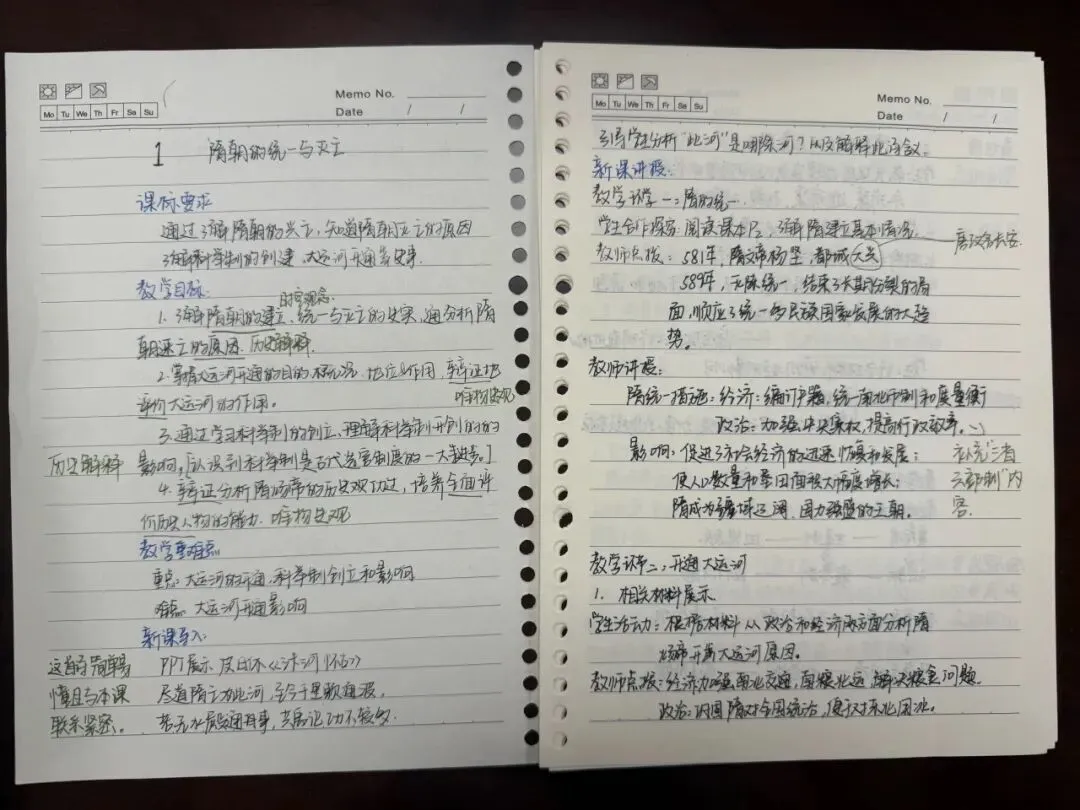 Memo No.
Mo Tu We Th Fr Sa Su
Date / /
1 隋朝的统一与灭亡
课标要求
通过了解隋朝的兴亡,知道隋朝灭亡的原因
了解科举制的创建、大运河开通等史事.
教学目标:
时空观念.
1. 了解隋朝的建立、统一与灭亡的史实,分析隋
朝速亡的原因. 历史解释.
2. 掌握大运河开通的目的、地位&作用,辩证地
评价大运河的作用。 唯物史观
3. 通过学习科举制的创立,理解科举制开创的的
历史解释 影响,[认识到科举制是古代选官制度的一大进步。]
4. 辩证分析隋炀帝的历史功过,培养全面评
价历史人物的能力. 唯物史观
教学重难点
重点:大运河的开通,科举制创立和影响
难点:大运河开通影响
新课导入:
这首诗简单易 PPT展示 皮日休《汴河怀古》
懂且与本课 尽道隋亡为此河,至今千里赖通波.
联系紧密。 若无水殿龙舟事,共禹论功不较多.
Memo No.
Mo Tu We Th Fr Sa Su
Date / /
引导学生分析“此河”是哪条河?以及解释此诗含义.
新课讲授:
教学环节一:隋的统一.
学生合作探究:阅读课本P2,了解隋建立基本情况.
唐改名长安.
教师点拨:581年,隋文帝杨坚,都城大兴
589年,灭陈统一,结束了长期分裂的局
面,顺应了统一多民族国家发展的大趋
势。
教师讲授:
隋统一措施:经济:编订户籍,统一南北币制和度量衡
政治:加强中央集权,提高行政效率.
影响:促进了社会经济的迅速恢复和发展;
使人口数量和垦田面积大幅度增长;
隋成为疆域辽阔、国力强盛的王朝.
补充“三省
六部制”内
容.
教学环节二:开通大运河
1. 相关材料展示.
学生活动:根据材料从政治和经济两方面分析隋
炀帝开凿大运河原因。
教师点拨:经济:加强南北交通,南粮北运,解决粮食问题.
政治:巩固隋对全国统治,便于对东北用兵.